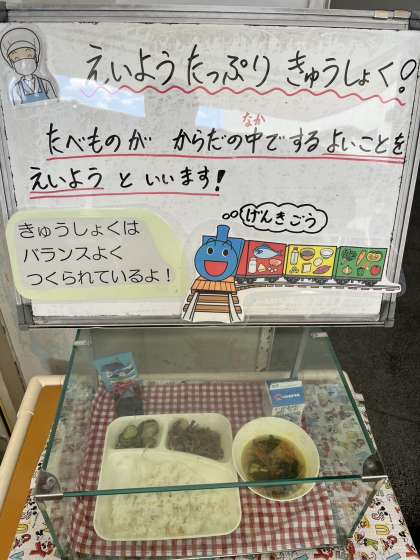 えいようたっぷり きゅうしょく!
たべものが からだの中でする よいことを
なか
えいよう と いいます!
げんきごう
きゅうしょくは
バランスよく
つくられているよ！